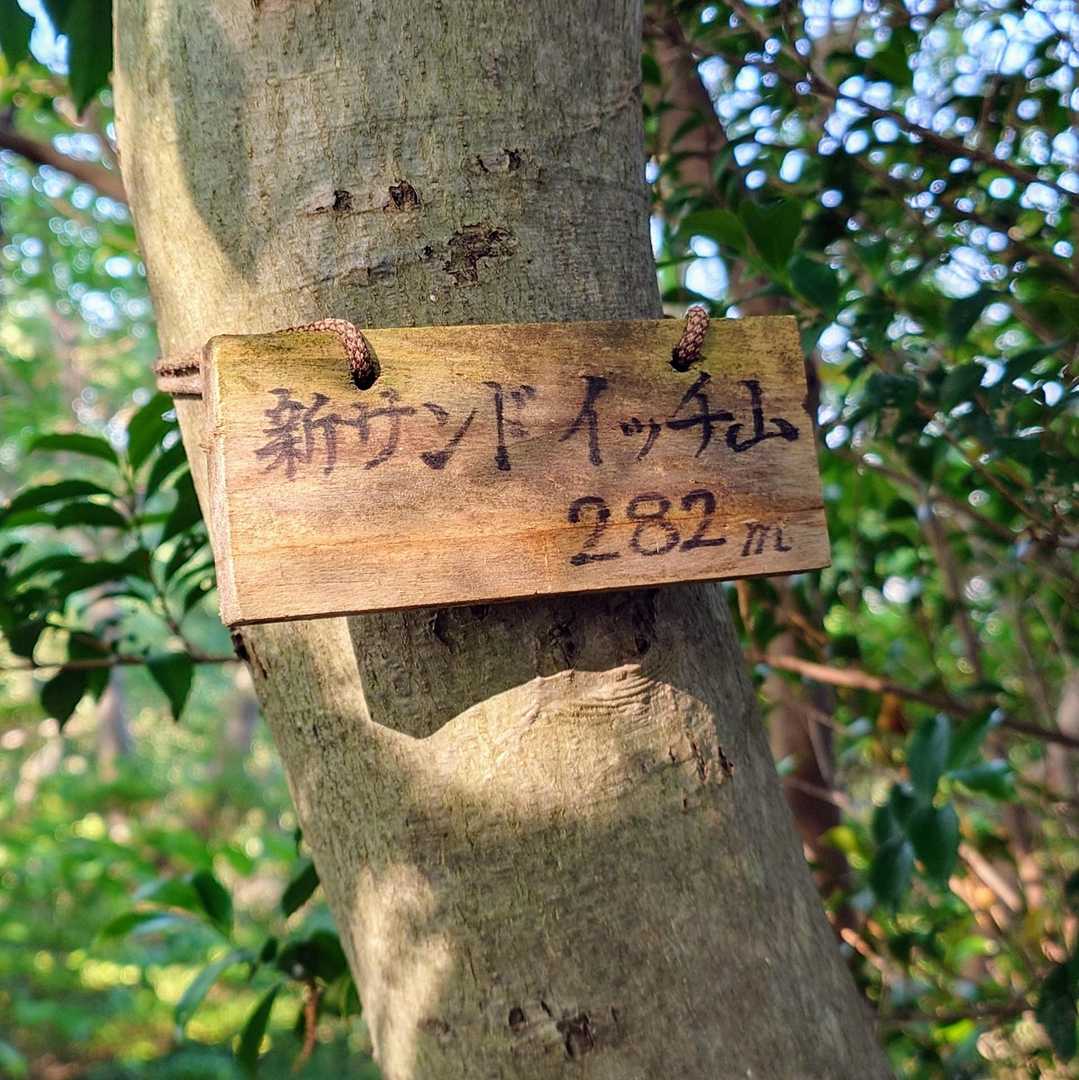 新サンドイッチ山
282m